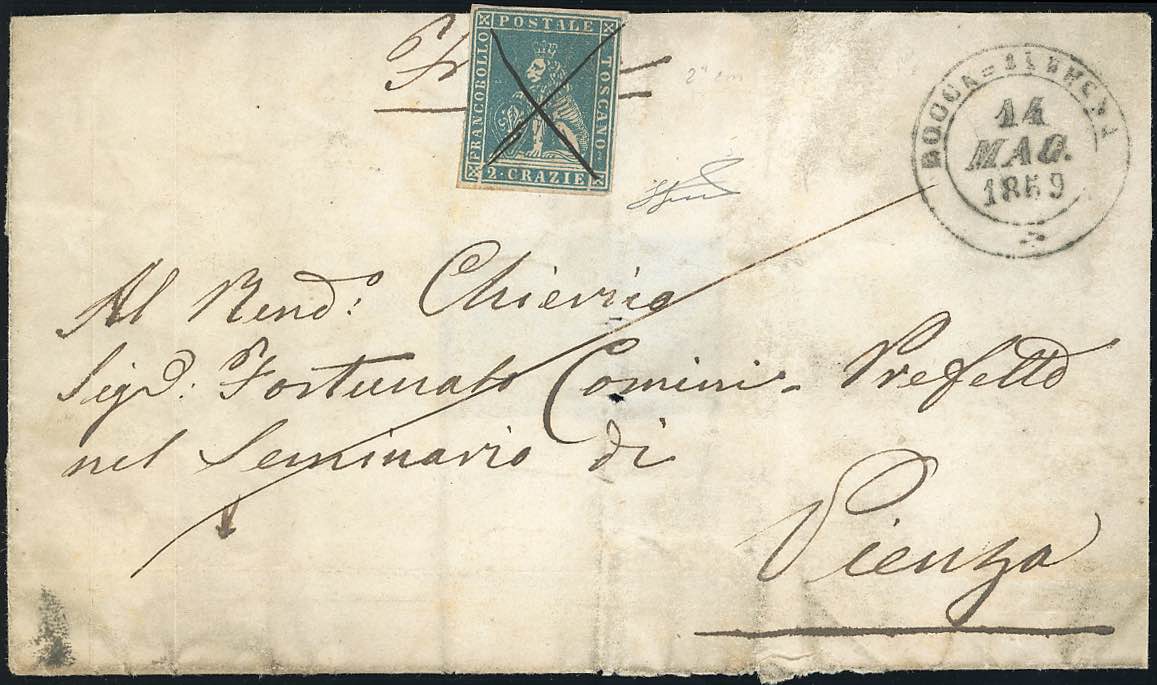 FRANCOBOLLO POSTALE TOSCANO
2 · CRAZIE
14
MAG.
1859
Al Rend.º: Chierico
Sigr.: Fortunato Comini - Prefetto
nel Seminario di
Pienza